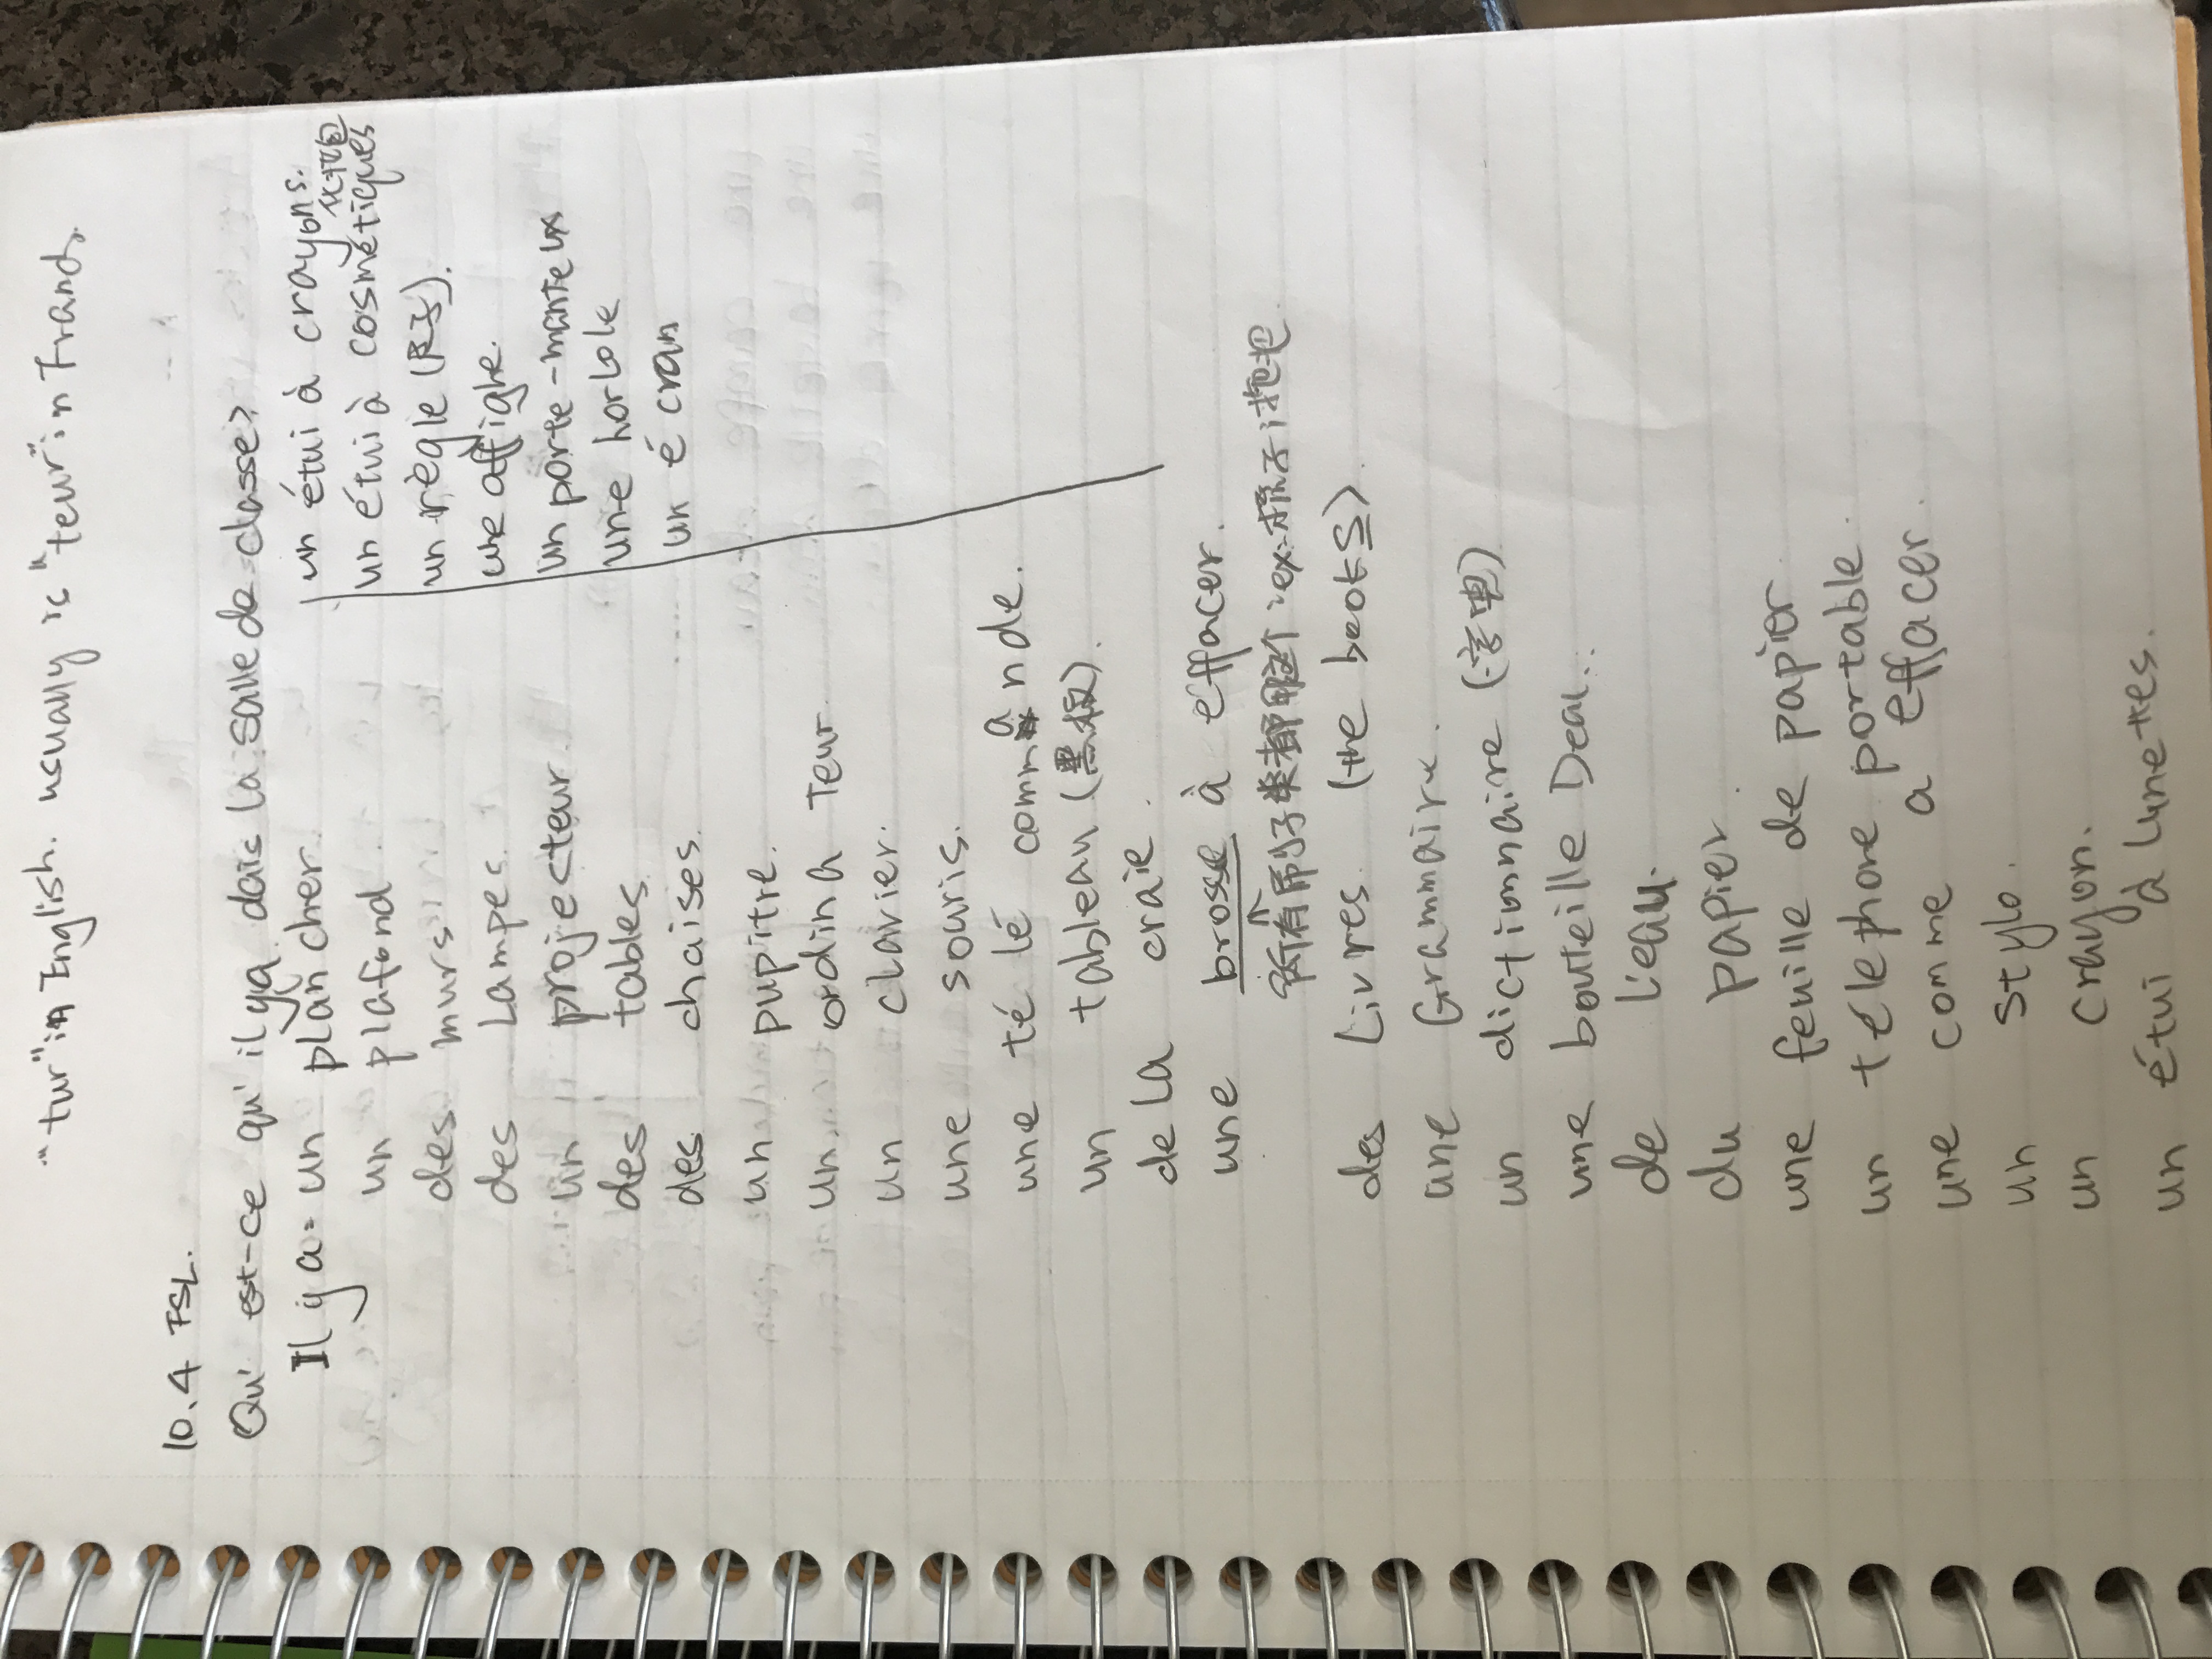 "tur" in English. usually is "teur" in Franch.
10.4 FSL.
Qu'est-ce qu'il ya dais la salle de classe?
Il y a: un plancher
un plafond
des murs
des Lampes
un projecteur
des tables
des chaises
un pupitre.
un ordina Teur
un clavier.
une souris.
une té lé commande.
un tableau (黑板).
de La craie.
une brosse à effacer.
所有刷子类都用这个, ex: 梳子; 拖把
des Livres (the books)
une Grammaire.
un dictionnaire (字典)
une bouteille Deau.
de l'eau.
du papier.
une feuille de papier
un téléphone portable.
une comme a effacer.
un stylo.
un crayon.
un étui à lunettes.
un étui à crayons.
un étui à cosmétiques 化妆包
un règle (尺子).
une affighe.
un porte-manteux
une horlole
un é cran